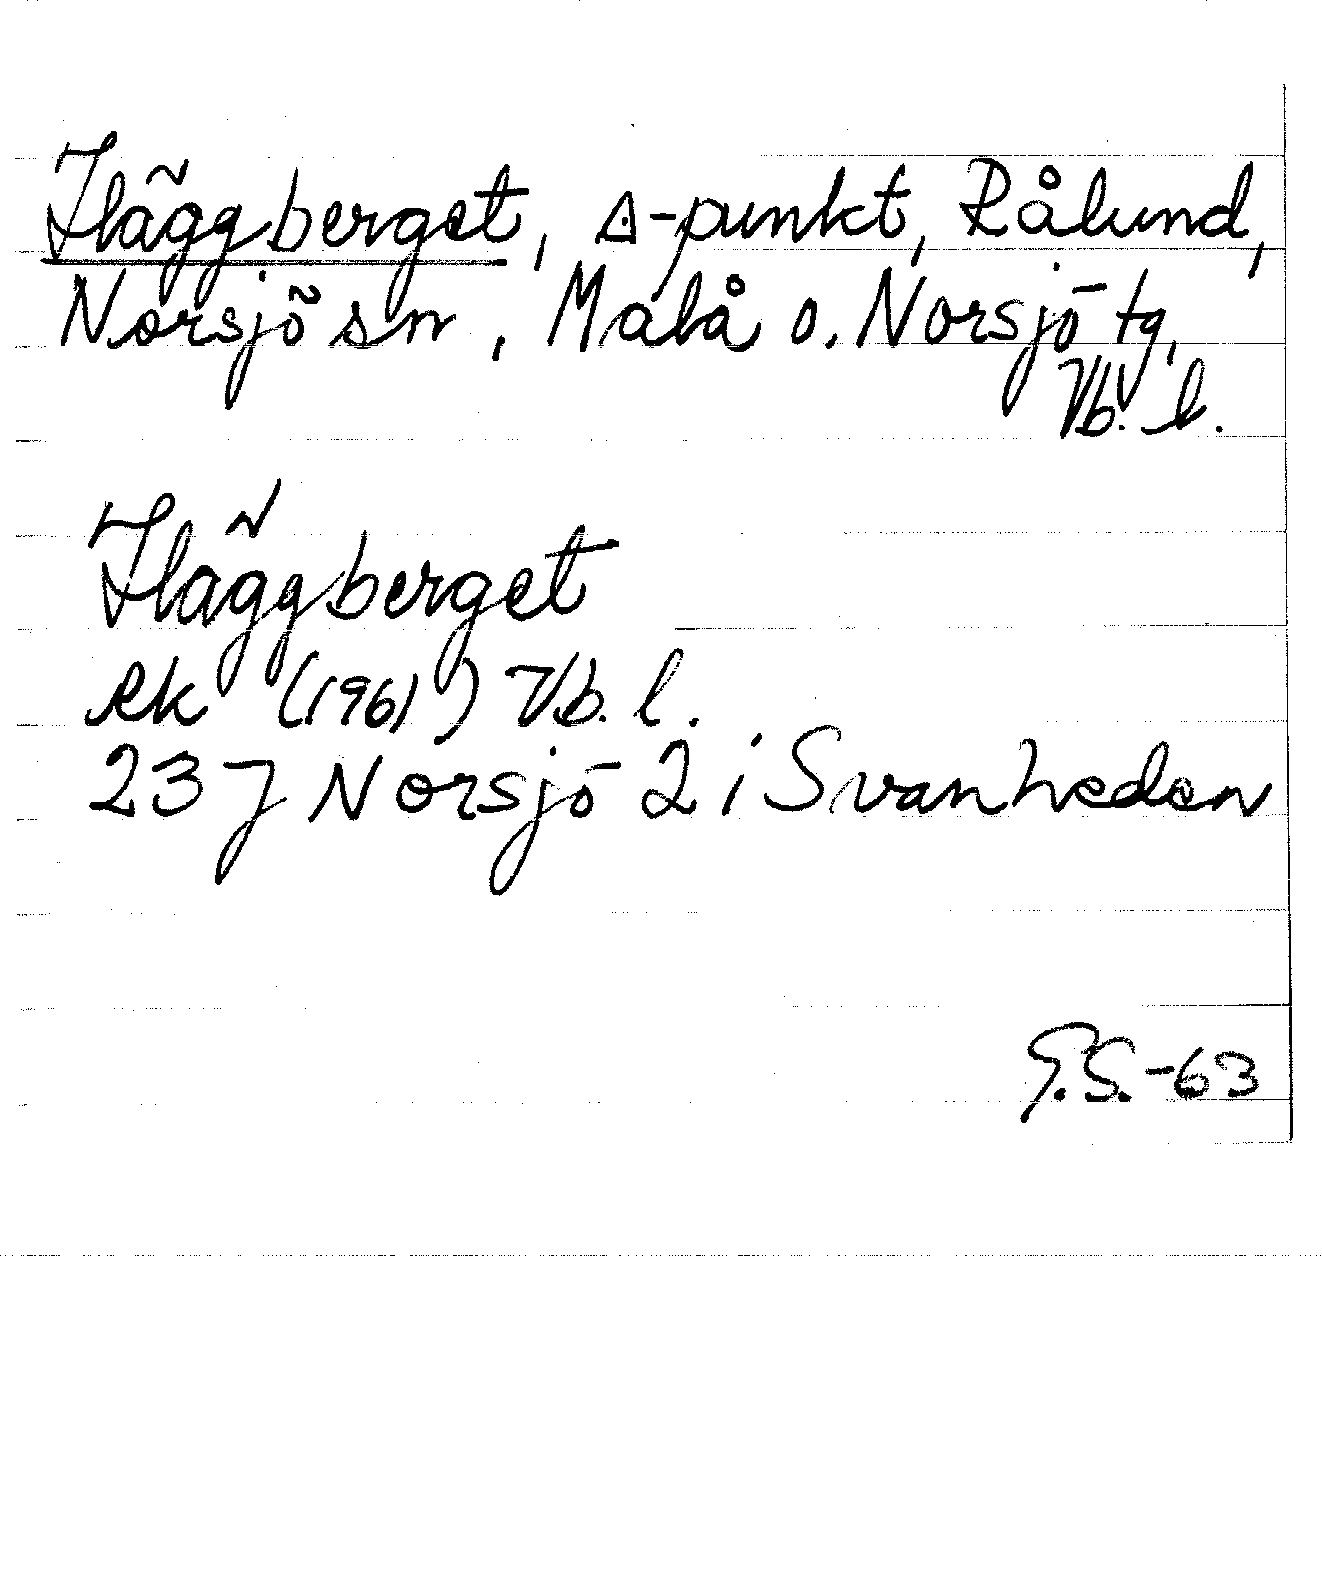 Häggberget, △-punkt, Rålund,
Norsjö sn, Malå o. Norsjö tg,
Vb. l.
Häggberget
Rk (1961) Vb. l.
23 J Norsjö 2 i Svanheden
G.S.-63